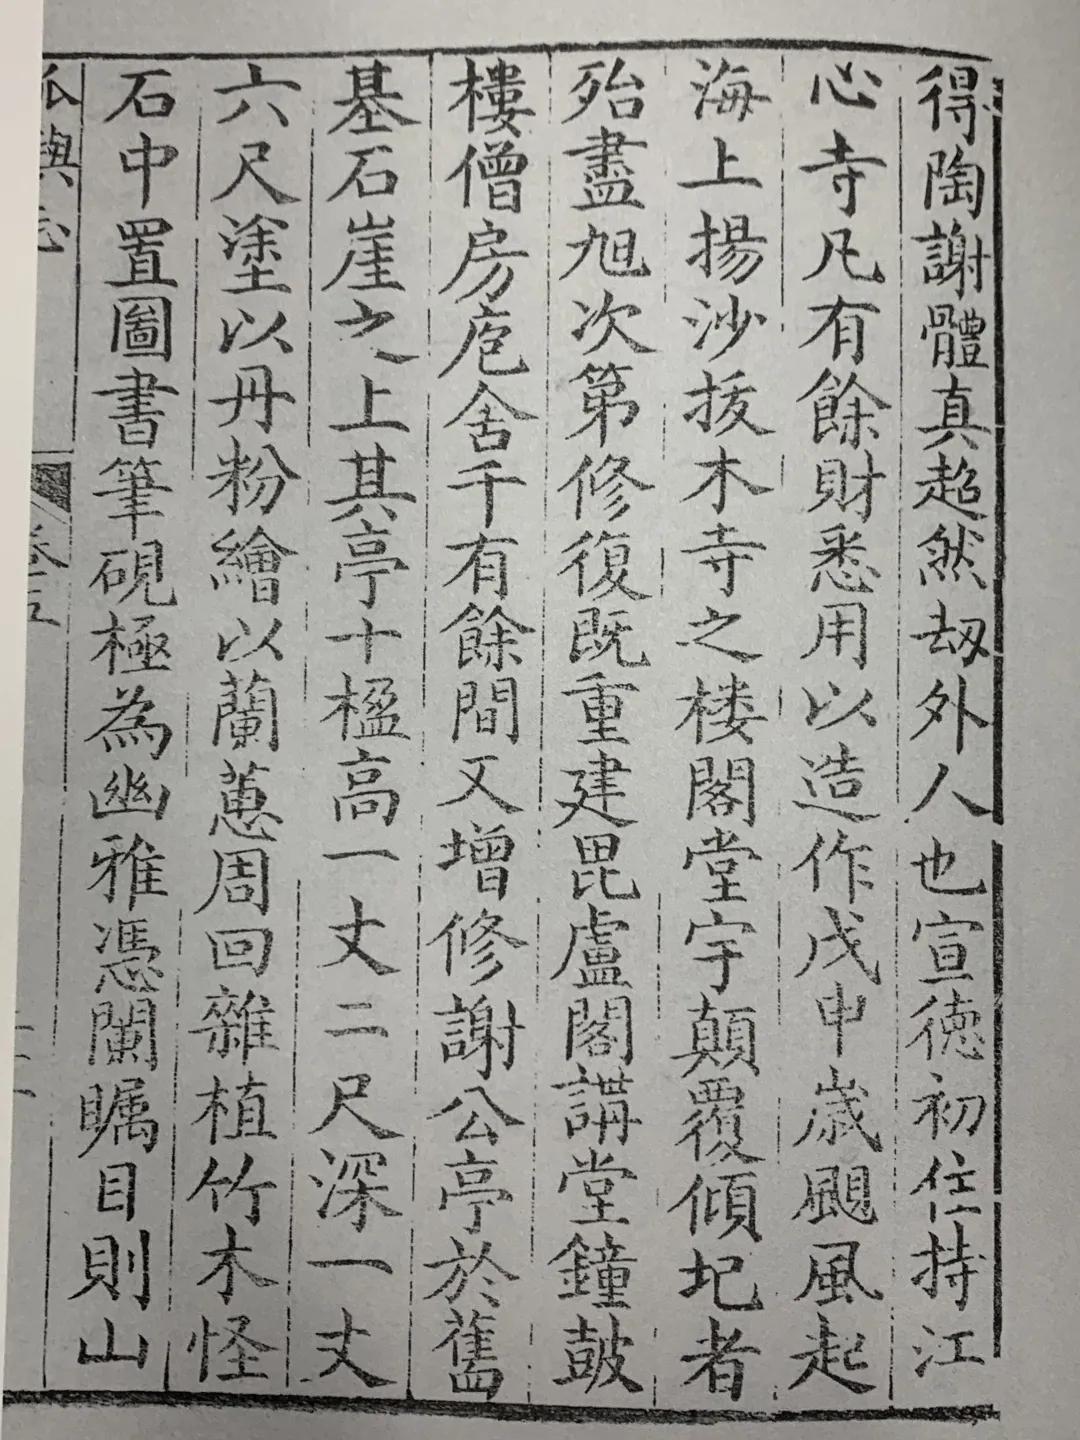 得陶謝體真超然刼外人也宣德初住持江
心寺凡有餘財悉用以造作戊申歲颶風起
海上揚沙拔木寺之楼閣堂宇顛覆傾圮者
殆盡旭次第修復既重建毘盧閣講堂鐘鼓
樓僧房庖舍千有餘間又增修謝公亭於舊
基石崖之上其亭十楹高一丈二尺深一丈
六尺塗以丹粉繪以蘭蕙周回雜植竹木怪
石中置圖書筆硯極為幽雅憑闌瞩目則山
孤嶼志
卷五